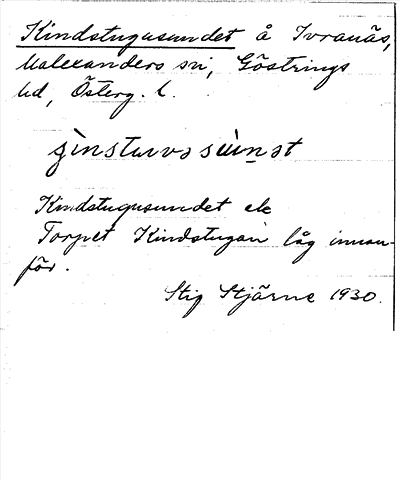 Kindstugusundet å Ivranäs,
Malexanders sn, Göstrings
hd, Österg. l.
Kindstugusundet
Torpet Kindstugan låg innan-
för.
Stig Stjärne 1930.